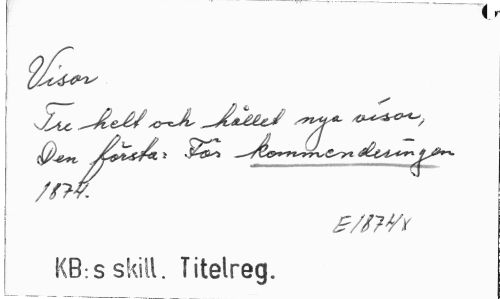 Visor
Tre helt och hållet nya visor,
Den första: För kommenderingen
1874.
E1874v
KB:s skill. Titelreg.